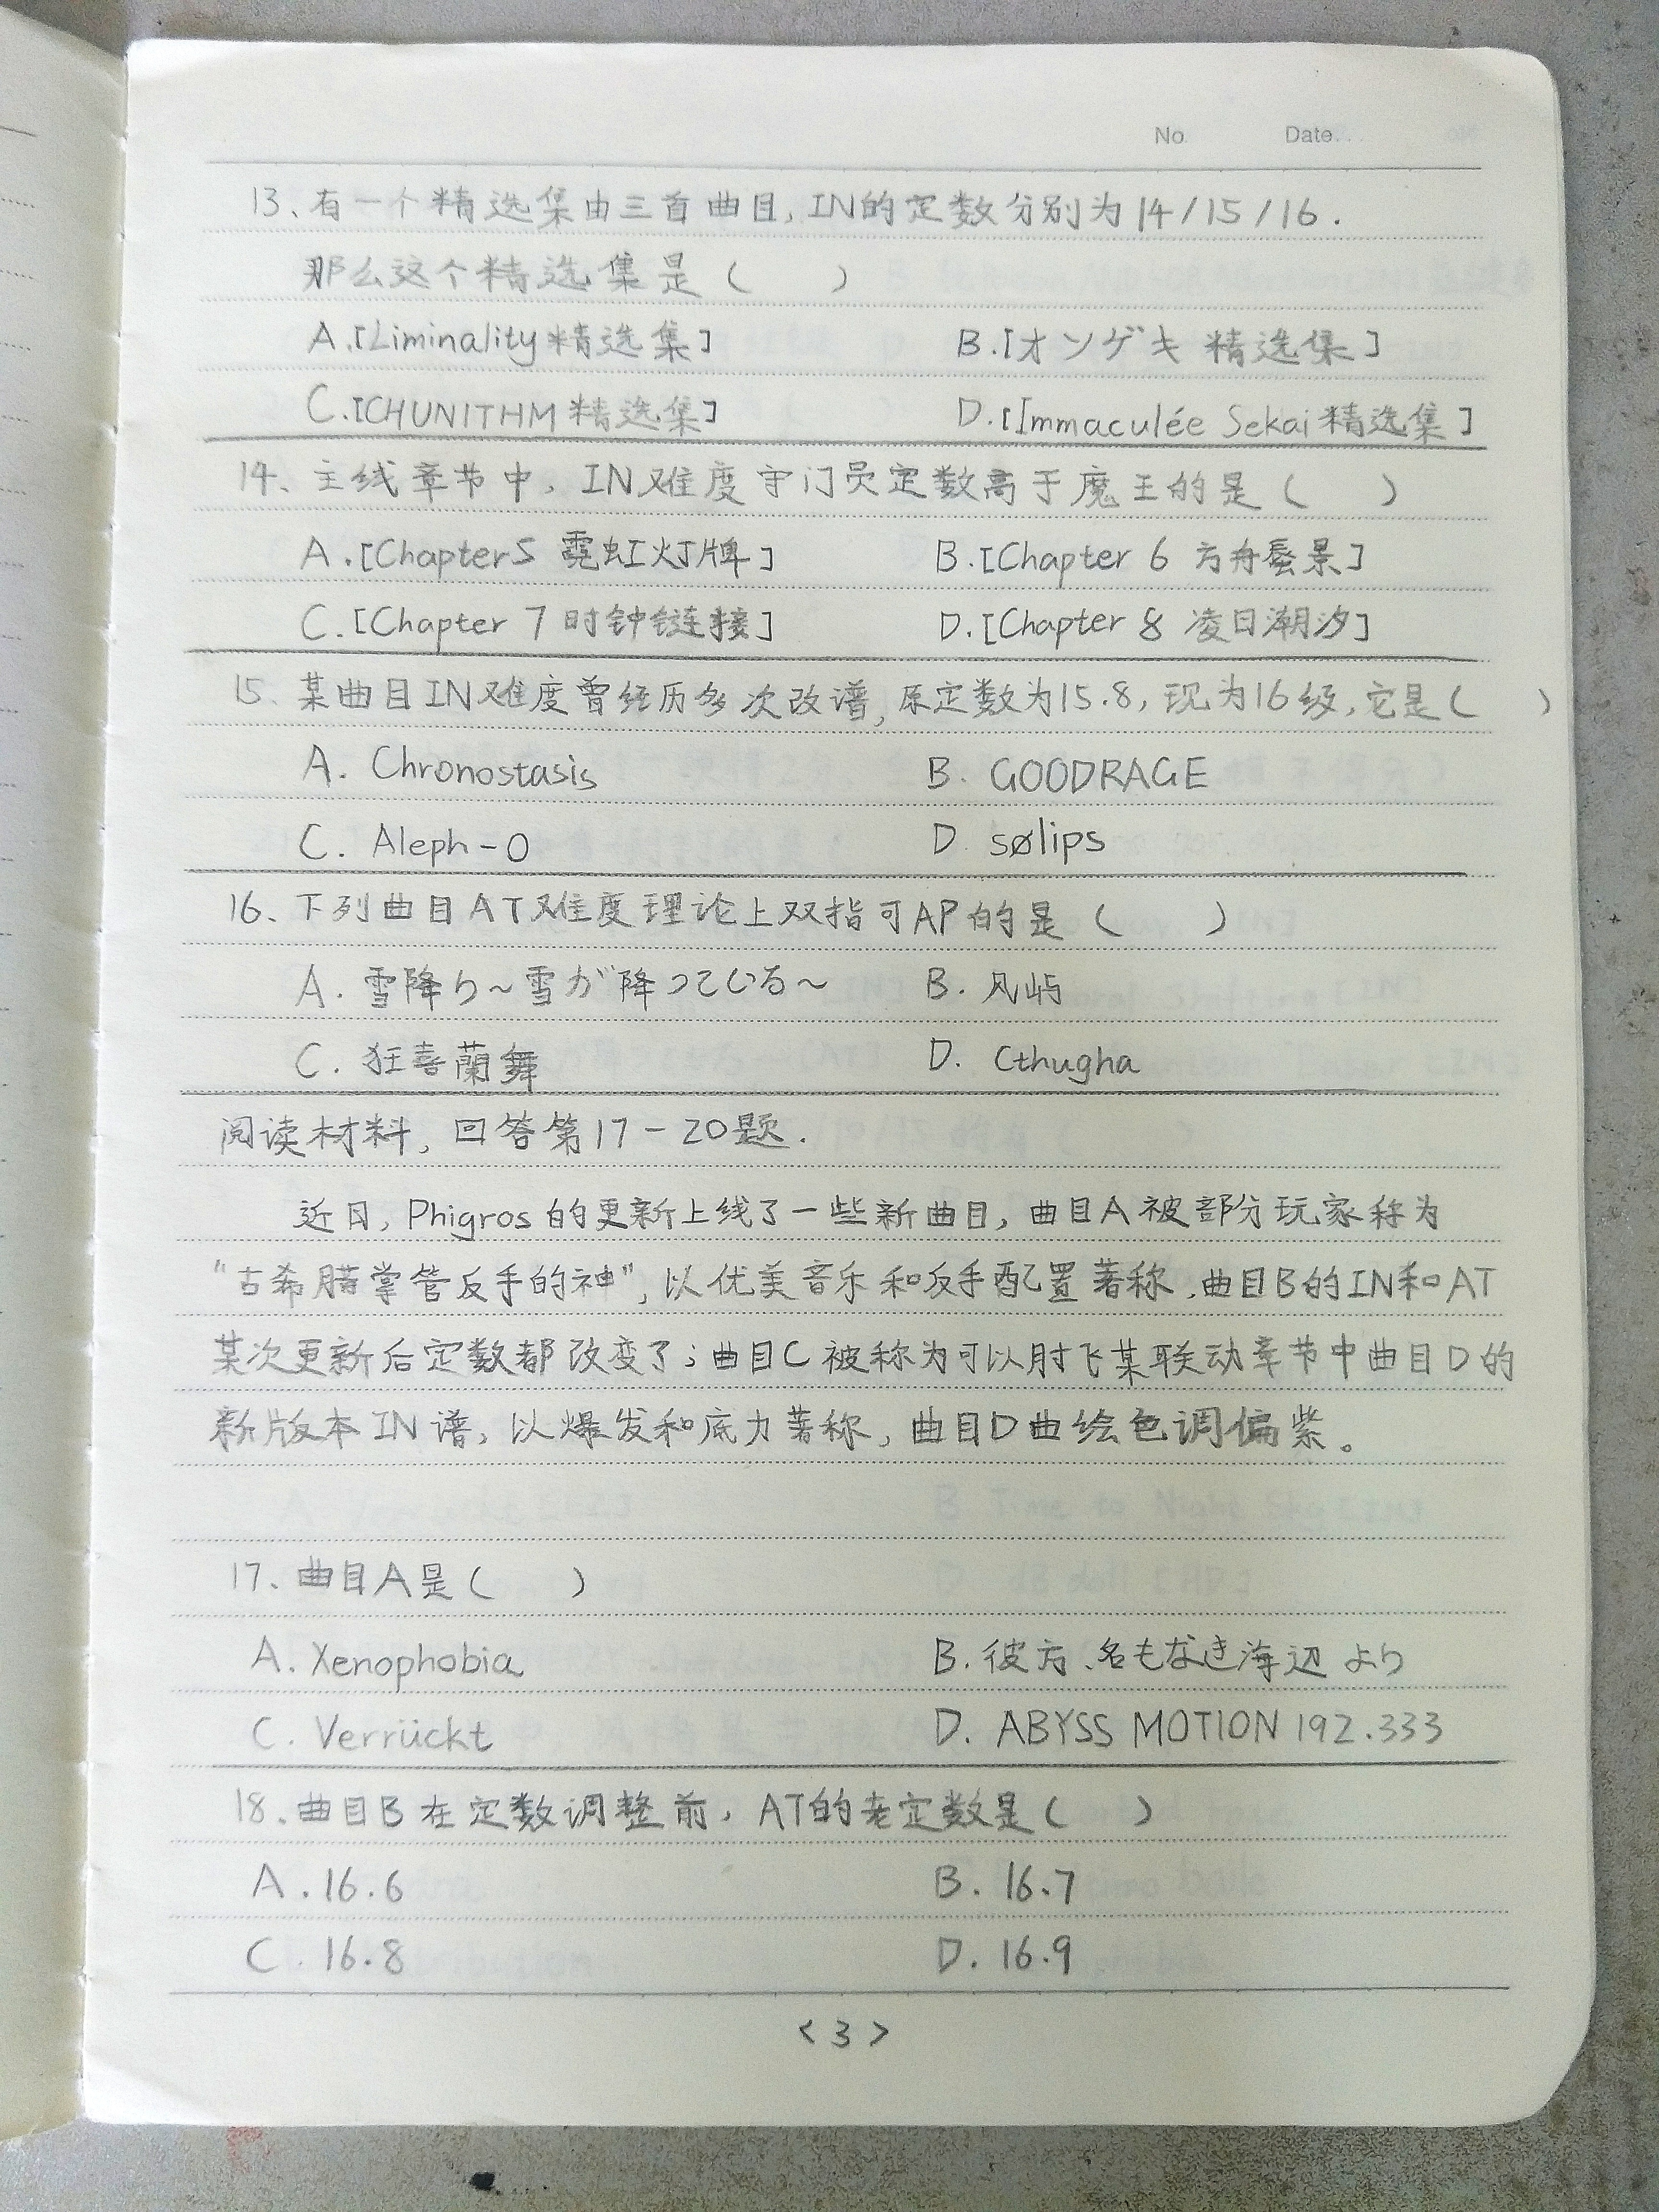 No. Date.
13、有一个精选集由三首曲目,IN的定数分别为14/15/16.
那么这个精选集是( )
A.[Liminality精选集] B.[オンゲキ 精选集]
C.[CHUNITHM精选集] D.[Immaculée Sekai精选集]
14、主线章节中,IN难度守门员定数高于魔王的是( )
A.[Chapter5 霓虹灯牌] B.[Chapter 6 方舟蜃景]
C.[Chapter 7 时钟链接] D.[Chapter 8 凌日潮汐]
15、某曲目IN难度曾经历多次改谱,原定数为15.8,现为16级,它是( )
A. Chronostasis B. GOODRAGE
C. Aleph-0 D. sølips
16、下列曲目AT难度理论上双指可AP的是( )
A. 雪降り~雪が降っている~ B. 风屿
C. 狂喜蘭舞 D. Cthugha
阅读材料,回答第17-20题.
近日,Phigros的更新上线了一些新曲目,曲目A被部分玩家称为
“古希腊掌管反手的神”,以优美音乐和反手配置著称,曲目B的IN和AT
某次更新后定数都改变了;曲目C被称为可以肘飞某联动章节中曲目D的
新版本IN谱,以爆发和底力著称,曲目D曲绘色调偏紫。
17、曲目A是( )
A. Xenophobia B. 彼方、名もなき海辺より
C. Verrückt D. ABYSS MOTION 192.333
18、曲目B在定数调整前,AT的老定数是( )
A. 16.6 B. 16.7
C. 16.8 D. 16.9
<3>